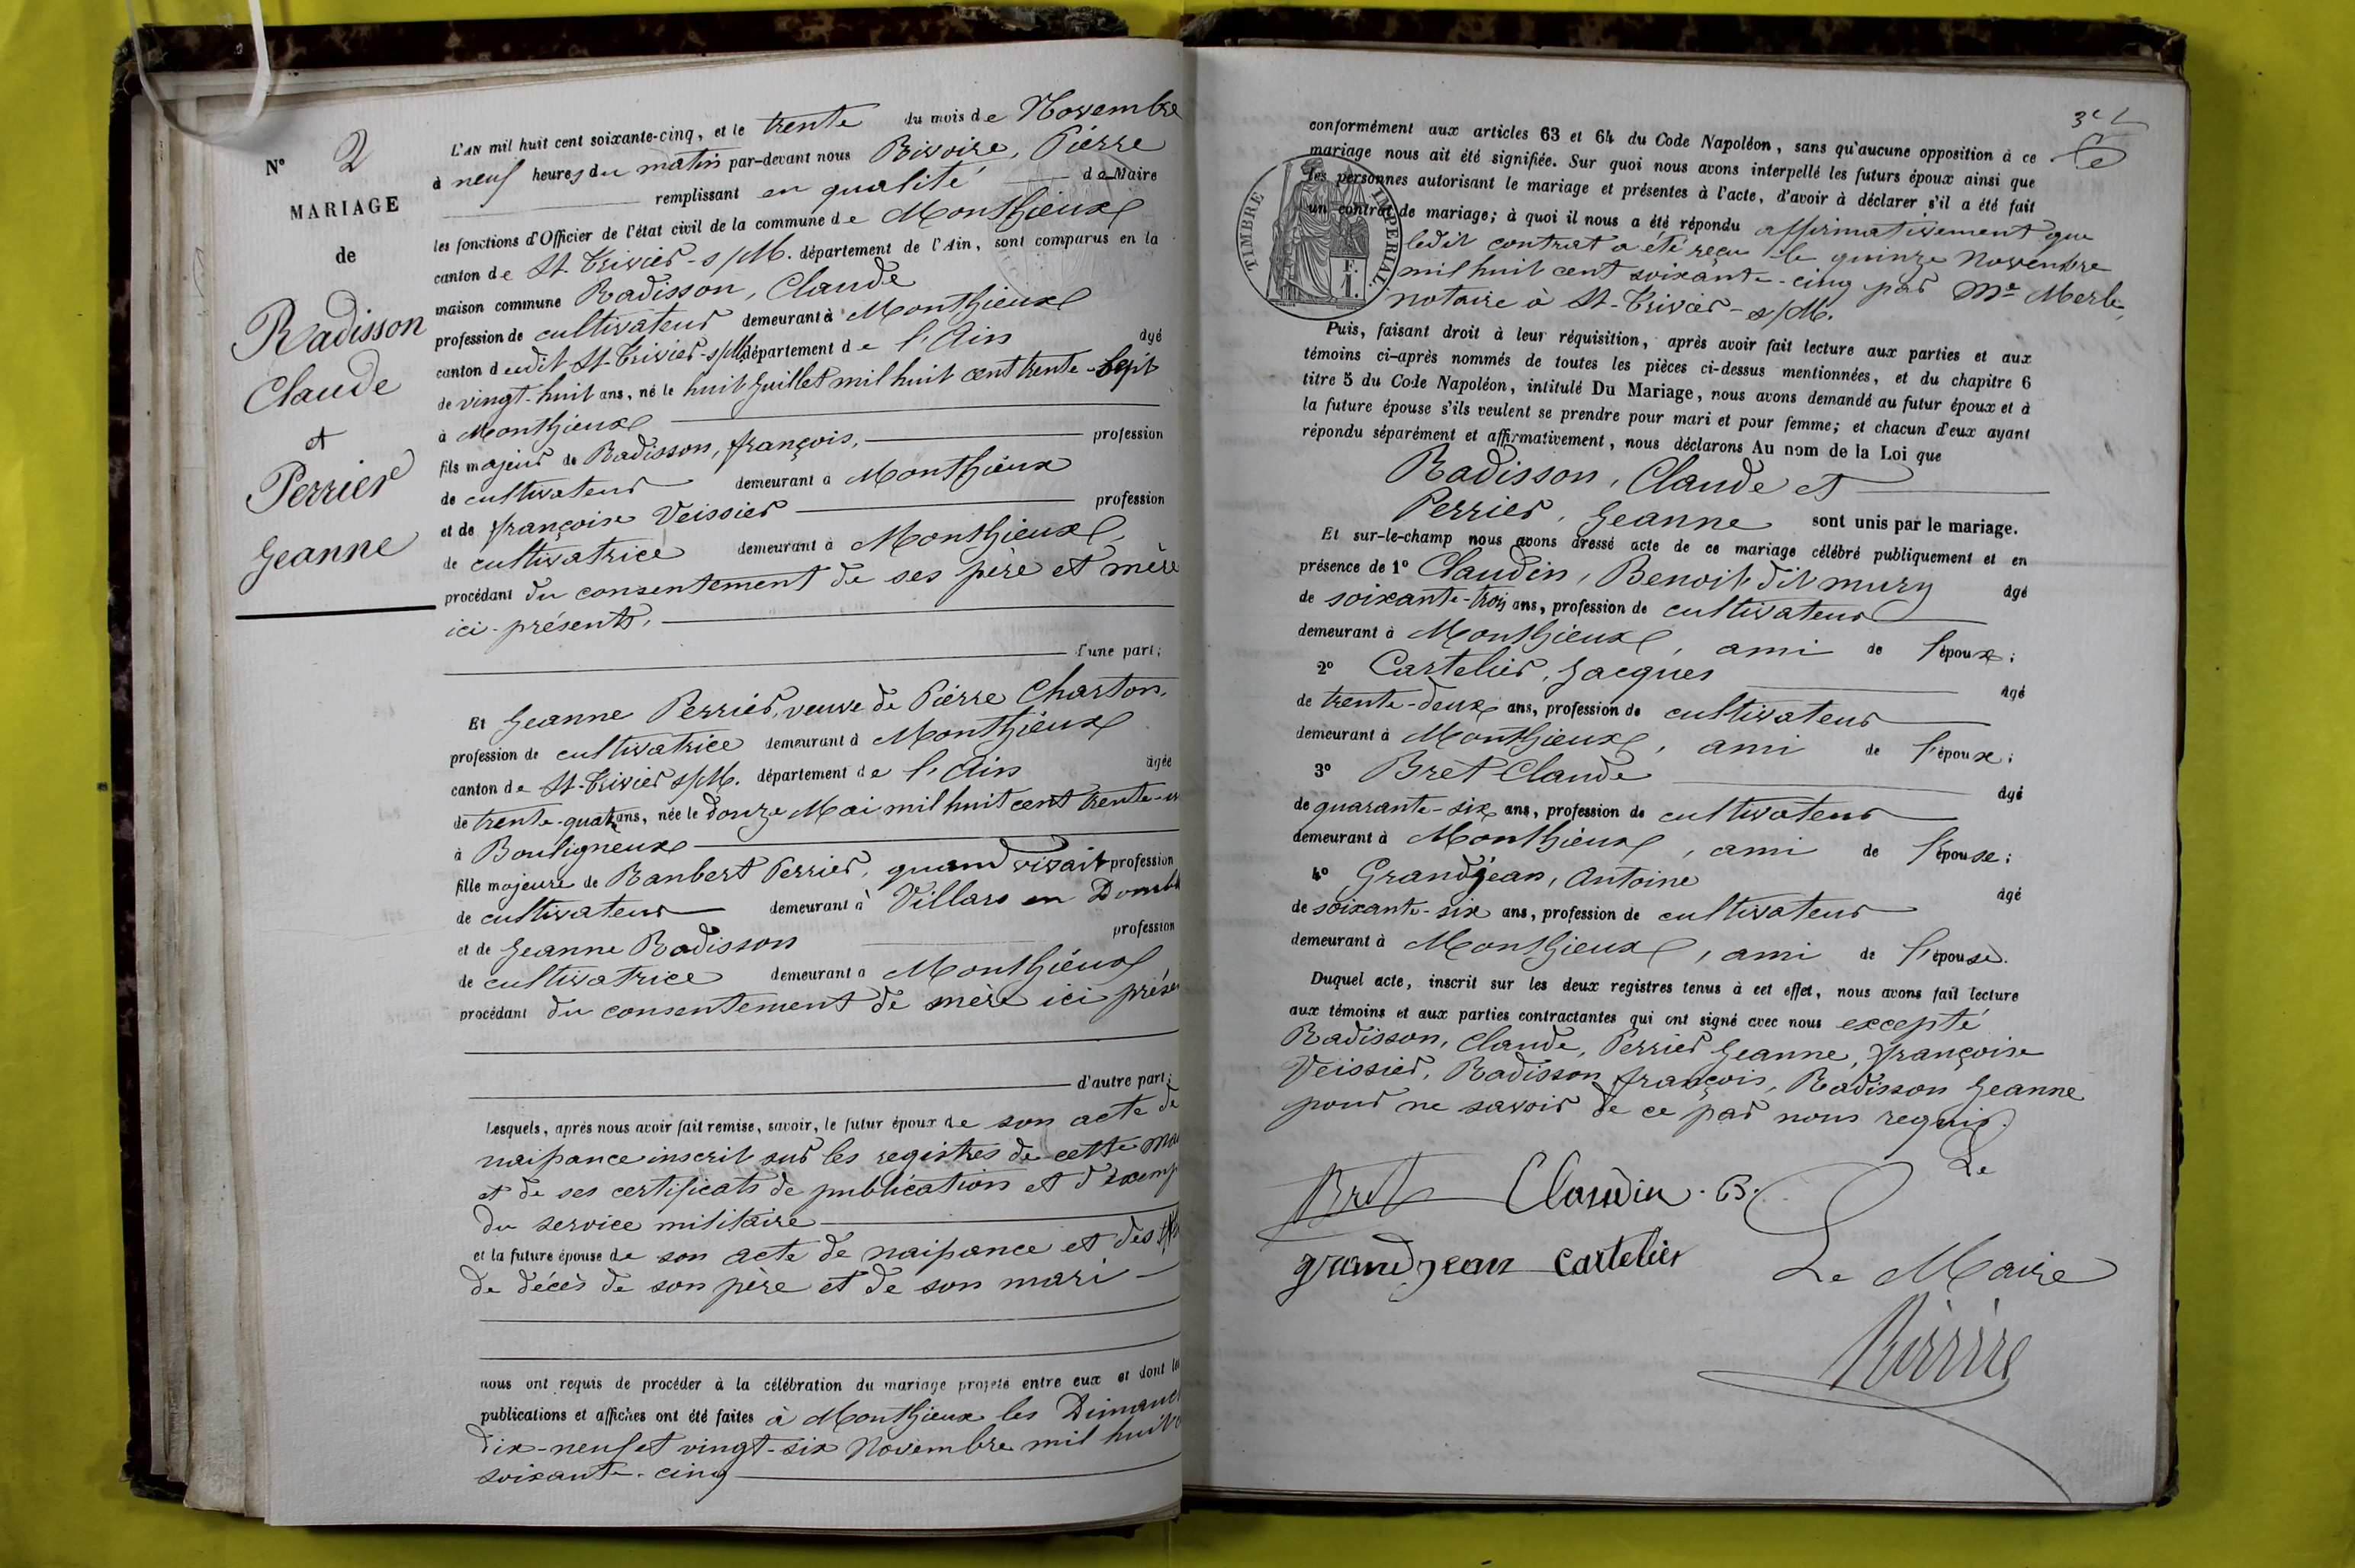 N° 2
MARIAGE
de
Radisson
Claude
et
Perrier
Jeanne
L'AN mil huit cent soixante-cinq, et le trente du mois de Novembre
à neuf heures du matin par-devant nous Rivoire, Pierre
remplissant en qualité de Maire
les fonctions d'Officier de l'état civil de la commune de Monthieux
canton de St-Trivier-s/M. département de l'Ain, sont comparus en la
maison commune Radisson, Claude
profession de cultivateur demeurant à Monthieux
canton dudit St-Trivier-s/M. département de l'Ain âgé
de vingt-huit ans, né le huit Juillet mil huit cent trente-sept
à Monthieux
fils majeur de Radisson, françois, profession
de cultivateur demeurant à Monthieux
et de françoise Veissier profession
de cultivatrice demeurant à Monthieux,
procédant du consentement de ses père et mère
ici-présents.
d'une part;
Et Jeanne Perrier, veuve de Pierre Charton,
profession de cultivatrice demeurant à Monthieux
canton de St-Trivier s/M. département de l'Ain âgée
de trente-quatre ans, née le douze Mai mil huit cent trente-un
à Bouligneux
fille majeure de Rambert Perrier, quand vivait profession
de cultivateur demeurant à Villars en Domb
et de Jeanne Radisson profession
de cultivatrice demeurant à Monthieux
procédant du consentement de mère ici prése
d'autre part;
Lesquels, après nous avoir fait remise, savoir, le futur époux de son acte de
naissance inscrit sur les registres de cette
et de ses certificats de publication et d'exemp
du service militaire
et la future épouse de son acte de naissance et des
de décès de son père et de son mari
nous ont requis de procéder à la célébration du mariage projeté entre eux et dont les
publications et affiches ont été faites à Monthieux les Dimanch
dix-neuf et vingt-six Novembre mil huit
soixante-cinq
conformément aux articles 63 et 64 du Code Napoléon, sans qu'aucune opposition à ce
mariage nous ait été signifiée. Sur quoi nous avons interpellé les futurs époux ainsi que
les personnes autorisant le mariage et présentes à l'acte, d'avoir à déclarer s'il a été fait
un contrat de mariage; à quoi il nous a été répondu affirmativement que
ledit contrat a été reçu le quinze Novembre
mil huit cent soixante-cinq par Me Merle,
notaire à St-Trivier-s/M.
TIMBRE IMPERIAL.
F.
1.
Puis, faisant droit à leur réquisition, après avoir fait lecture aux parties et aux
témoins ci-après nommés de toutes les pièces ci-dessus mentionnées, et du chapitre 6
titre 5 du Code Napoléon, intitulé Du Mariage, nous avons demandé au futur époux et à
la future épouse s'ils veulent se prendre pour mari et pour femme; et chacun d'eux ayant
répondu séparément et affirmativement, nous déclarons Au nom de la Loi que
Radisson, Claude et
Perrier, Jeanne sont unis par le mariage.
Et sur-le-champ nous avons dressé acte de ce mariage célébré publiquement et en
présence de 1° Claudin, Benoit dit mury âgé
de soixante-trois ans, profession de cultivateur
demeurant à Monthieux, ami de l'époux;
2° Cartelier, Jacques âgé
de trente-deux ans, profession de cultivateur
demeurant à Monthieux, ami de l'époux;
3° Bret Claude âgé
de quarante-six ans, profession de cultivateur
demeurant à Monthieux, ami de l'épouse;
4° Grandjean, Antoine âgé
de soixante-six ans, profession de cultivateur
demeurant à Monthieux, ami de l'épouse.
Duquel acte, inscrit sur les deux registres tenus à cet effet, nous avons fait lecture
aux témoins et aux parties contractantes qui ont signé avec nous excepté
Radisson, Claude, Perrier Jeanne, françoise
Veissier, Radisson françois, Radisson Jeanne
pour ne savoir de ce par nous requis.
Le
Bret Claudin. B.
grandjean Cartelier Le Maire
Rivoire